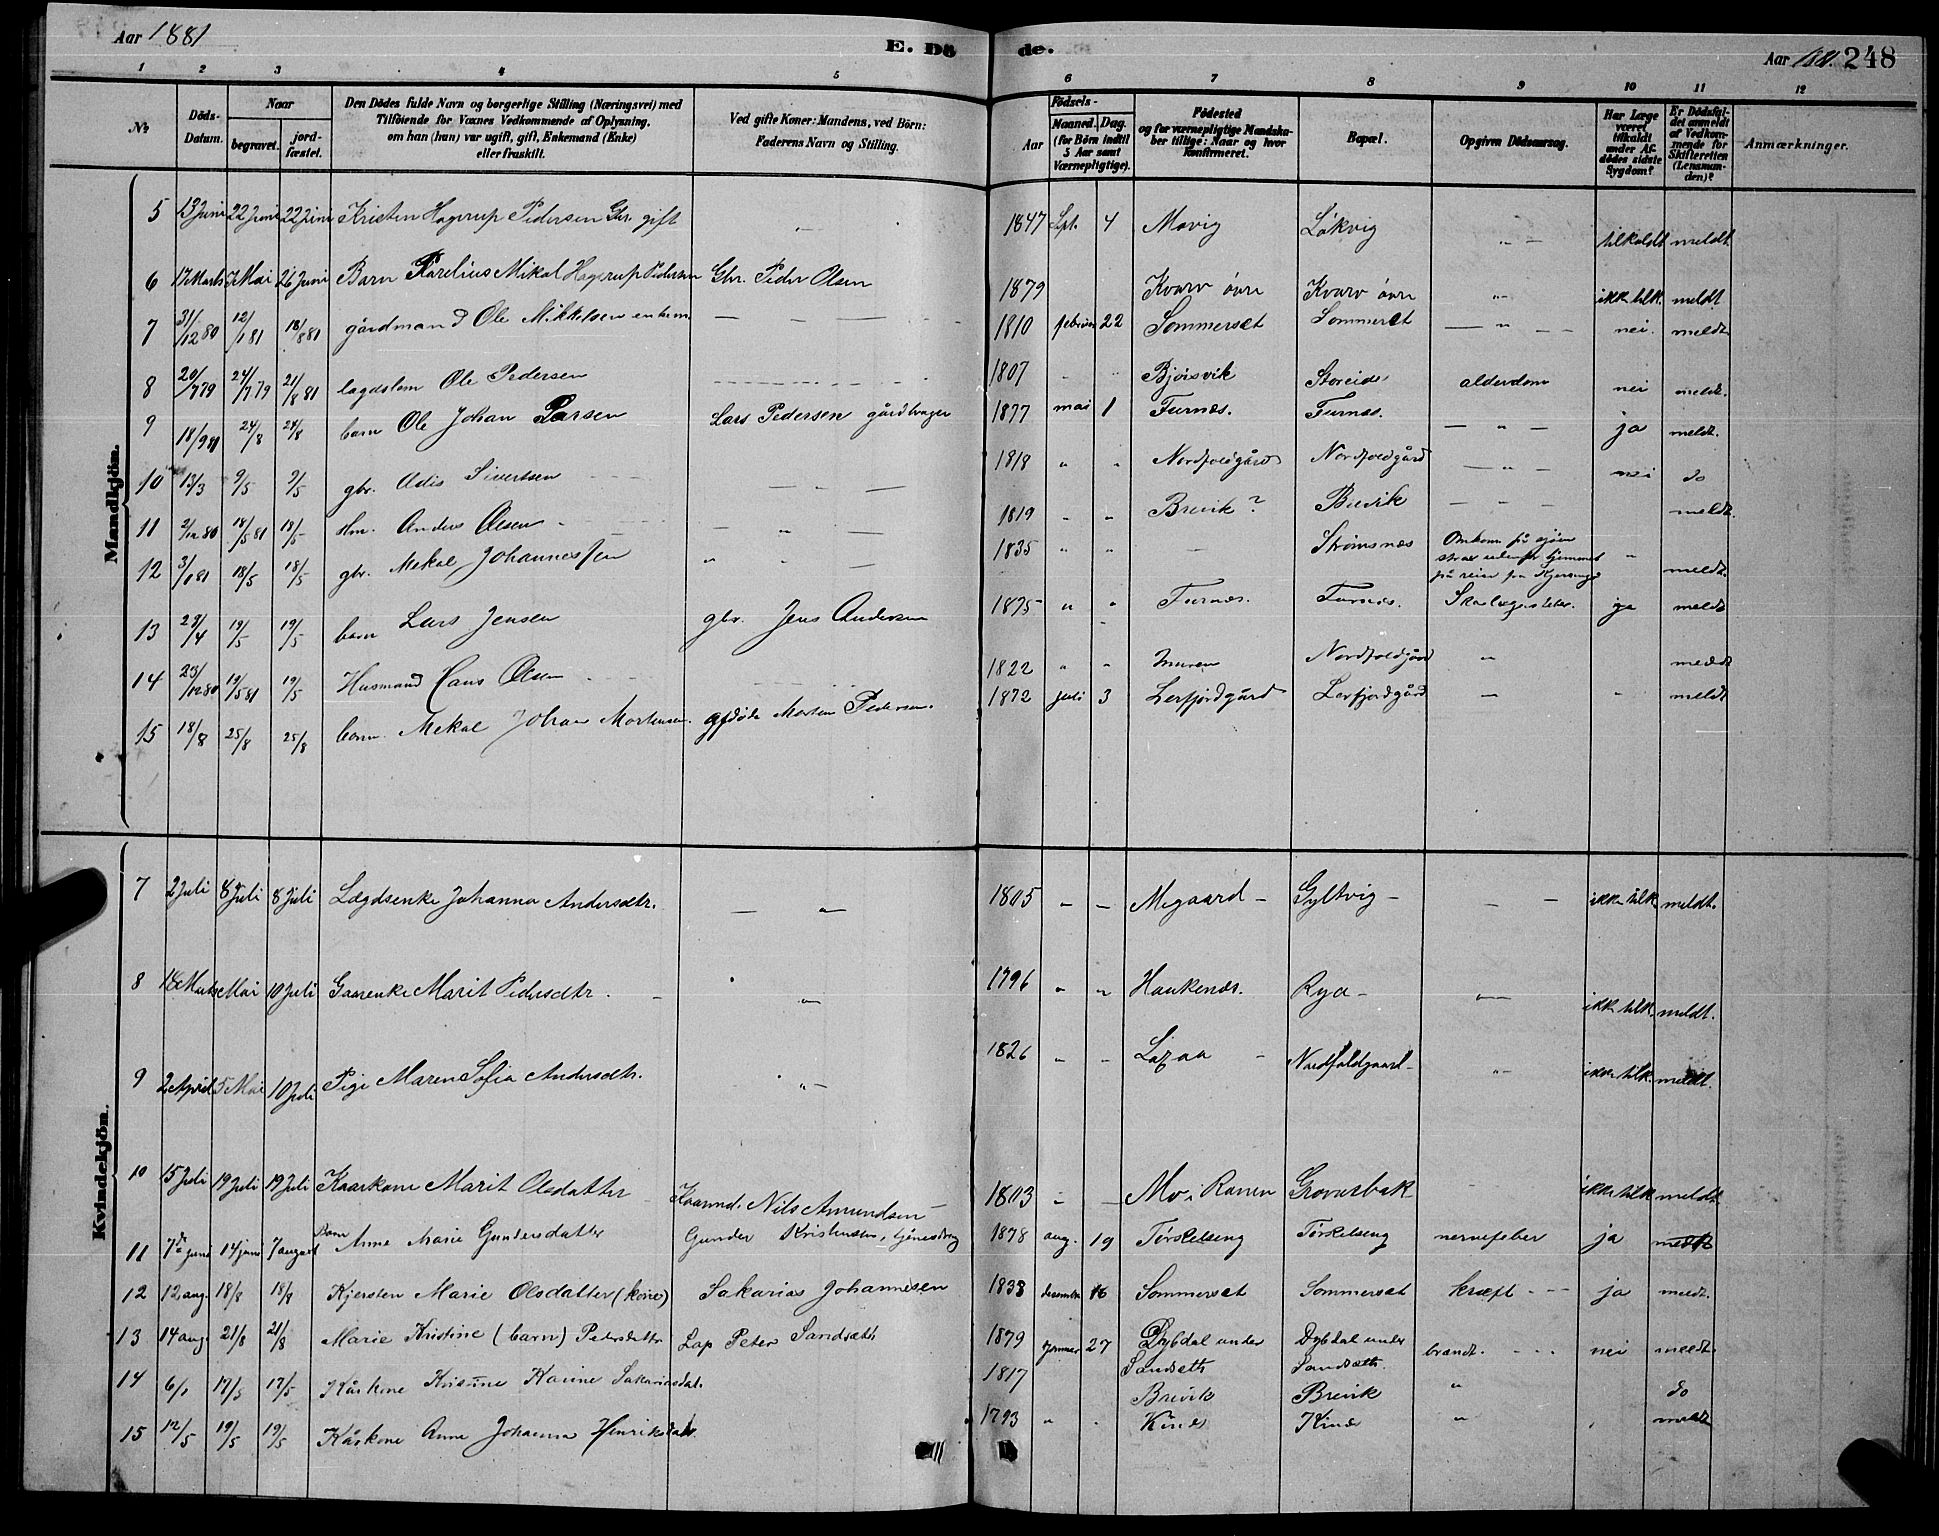 Aar 1881
E. Dö de.
Aar 1881. 248
1 2 3 4 5 6 7 8 9 10 11 12
№ Döds-Datum. Naar begravet. jord-fæstet. Den Dödes fulde Navn og borgerlige Stilling (Næringsvei) med Tilföiende for Voxnes Vedkommende af Oplysning, om han (hun) var ugift, gift, Enkemand (Enke) eller fraskilt. Ved gifte Koner: Mandens, ved Börn: Faderens Navn og Stilling. Födsels- Aar Maaned. Dag. (for Börn indtil 5 Aar samt Værnepligtige). Födested og for værnepligtige Mandskaber tillige: Naar og hvor Konfirmeret. Bopæl. Opgiven Dödsaarsag. Har Læge været tilkaldt under Afdödes sidste Sygdom? Er Dödsfaldet anmeldt af Vedkommende for Skifteretten (Lensmanden)? Anmærkninger.
Mandkjön.
5 13 Juni 22 Juni 22 Juni Kristen Hagerup Pedersen Gbr. gift " 1847 Spt. 4 Møvig Løkvig " - tilkaldt meldt
6 17 Marts Mai 26 Juni Barn Parelius Mikal Hagerup Pedersen Gbr. Peder Olsen 1879 Kvarv øvre Kvarv øvre " ikke tilk. meldt
7 31/12 80 12/1 81 18/8 81 gårdmand Ole Mikkelsen enkem. — — 1810 februar 22 Sommerset Sommerset — " — nei. meldt
8 20/7 79 24/7 79 21/8 81 lægdslem Ole Pedersen 1807 " Bjørsvik Storeide alderdom nei meldt.
9 18/9 81 24/8 24/8 barn Ole Johan Larsen Lars Pedersen gårdbruger 1877 mai 1 Furnes. Furnæs. — " — ja meldt.
10 13/3 9/5 9/5 gbr. Adis Sivertsen — - — 1818 " " Nordfoldgård Nordfoldgård — " — nei do
11 2/12 80 18/5 81 18/5 Hm. Anders Olsen — " — 1819 " " Brevik? Brevik — — — meldt.
12 3/1 81 18/5 18/5 gbr. Mekal Johannessen " " — 1835 " " - Strømsnæs Omkom på sjøen strax udenfor hjemmet på reise fra Kjerringø " meldt.
13 28/4 19/5 19/5 barn Lars Jensen gbr. Jens Andersen 1875 " " Furnæs. Furnæs. Skarlagensfeber. ja meldt
14 23/12 80 19/5 81 19/5 Husmand Hans Olsen 1822 " " Muren Nordfoldgård " meldt
15 18/8 25/8 25/8 barn Mekal Johan Mortensen. Morten Pedersen. 1872 juli 3 Lerfjordgård Lerfjordgård — " meldt
Kvindekjön.
7 2 Juli 8 Juli 8 Juli Lægdsenke Johanna Andersdtr. — " 1805 " — Megaard — Gyltvig — — — ikke tilk. meldt.
8 18 Marts Mai 10 Juli Gaarenke Marit Pedersdtr. — " 1796 " " Haukenæs. Rya — " ikke tilk. meldt.
9 2 April 5 Mai 10 Juli Pige Maren Sofia Andersdtr. " — 1826 " — — Nordfoldgaard — " — ikke tilk. meldt.
10 15 Juli 19 Juli 19 Juli Kaarkone Marit Olsdatter — Kaarmd. Nils Amundsen — 1803 " — Mo i Ranen Grovasbak — ikke tilk meldt
11 7de juni 14 juni 7 august Barn Anne Marie Gundersdatter Gunder Kristensen, 1878 aug. 19 Tørskelseng Tørskelseng nervefeber ja meldt
12 12 aug. 18/8 18/8 Kjersten Marie Olsdatter (kone) Sakarias Johannesen 1838 desember 16 Sommerset Sommerset kræft - - - ja meldt.
13 14 aug. 21/8 21/8 Marie Kristine (barn) Pedersdatter Lap Peter Sandsæth 1879 januar 27 Dybdal under Sandsæth Dybdal under Sandsæth brændt. - - - nei meldt.
14 6/1 17/5 17/5 Kårkone Kristine Karine Sakariasdat. 1817 Brevik Brevik " do
15 12/5 19/5 19/5 Kårkone Anne Johanna Henriksdatr. 1793 " . Kines Kines " . meldt